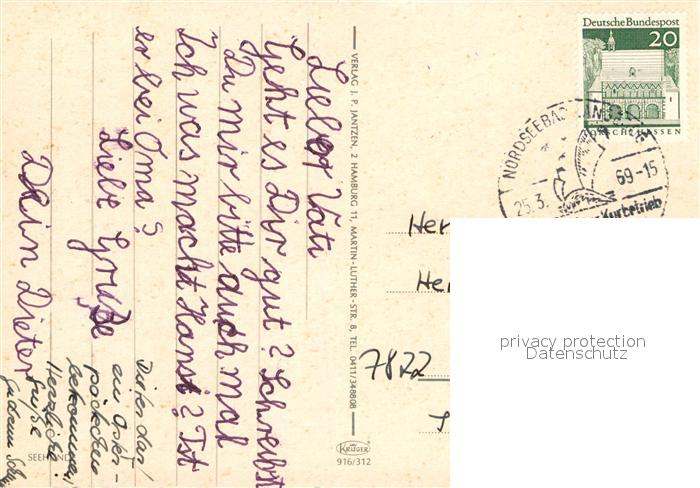 Lieber Vati
Geht es Dir gut? Schreibst
Du mir bitte auch mal
Ich was macht Hansi? Ist
er bei Oma?
Liebe Grüße
Dein Dieter
Dieter darf
ein Oster-
päckchen
bekommen!
Herzliche
Grüße
SEEHUND
VERLAG J. P. JANTZEN, 2 HAMBURG 11, MARTIN-LUTHER-STR. 8, TEL. 0411/348808
KRÜGER
916/312
Deutsche Bundespost
20
LORSCH/HESSEN
NORDSEEBAD
25.3.69-15
Kurbetrieb
Her
Her
7822
privacy protection
Datenschutz